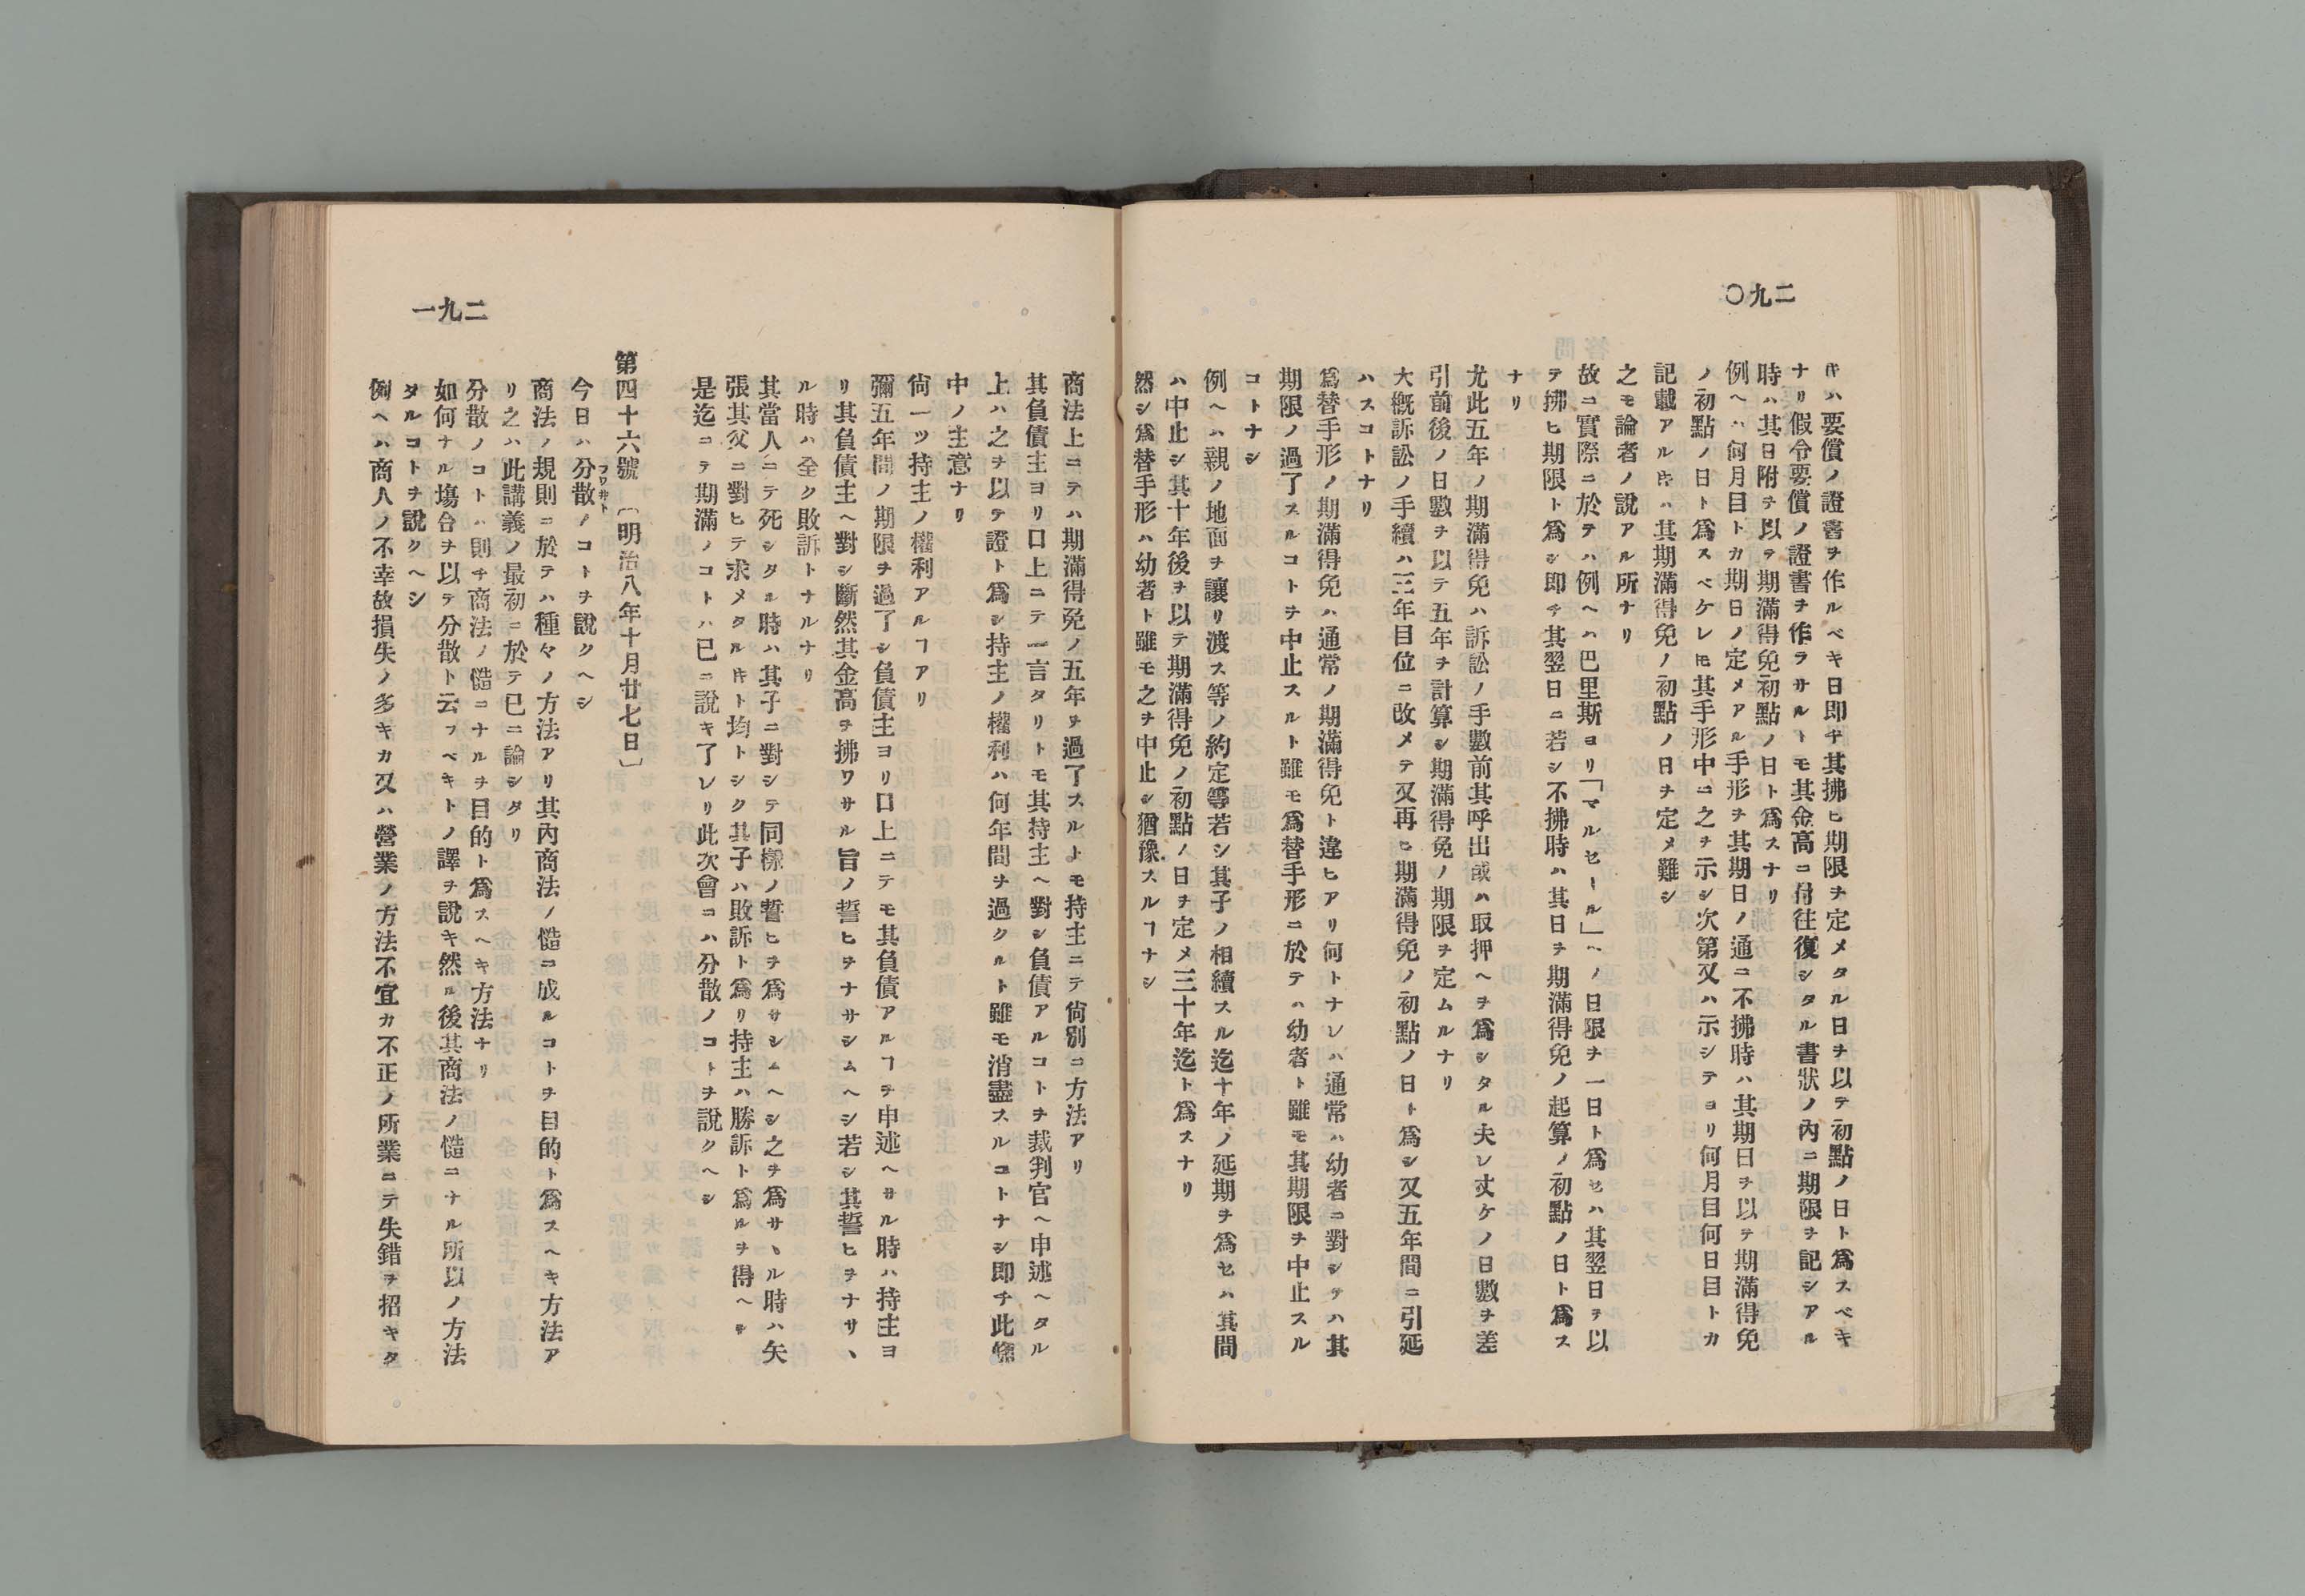 二九〇
キハ要償ノ證書ヲ作ルベキ日即チ其拂ヒ期限ヲ定メタル日ヲ以テ初點ノ日ト爲スベキ
ナリ假令要償ノ證書ヲ作ラサルトモ其金高ニ付往復シタル書狀ノ內ニ期限ヲ記シアル
時ハ其日附ヲ以テ期滿得免初點ノ日ト爲スナリ
例ヘハ何月目トカ期日ノ定メアル手形ヲ其期日ノ通ニ不拂時ハ其期日ヲ以テ期滿得免
ノ初點ノ日ト爲スベケレ𪜈其手形中ニ之ヲ示シ次第又ハ示シテヨリ何月目何日目トカ
記載アルキハ其期滿得免ノ初點ノ日ヲ定メ難シ
之モ論者ノ說アル所ナリ
故ニ實際ニ於テハ例ヘハ巴里斯ヨリ「マルセール」ヘノ日限ヲ一日ト爲セハ其翌日ヲ以
テ拂ヒ期限ト爲シ即チ其翌日ニ若シ不拂時ハ其日ヲ期滿得免ノ起算ノ初點ノ日ト爲ス
ナリ
尤此五年ノ期滿得免ハ訴訟ノ手數前其呼出或ハ取押ヘヲ爲シタル夫レ丈ケノ日數ヲ差
引前後ノ日數ヲ以テ五年ヲ計算シ期滿得免ノ期限ヲ定ムルナリ
大槪訴訟ノ手續ハ三年目位ニ改メテ又再ヒ期滿得免ノ初點ノ日ト爲シ又五年間ニ引延
ハスコトナリ
爲替手形ノ期滿得免ハ通常ノ期滿得免ト違ヒアリ何トナレハ通常ハ幼者ニ對シテハ其
期限ノ過了スルコトヲ中止スルト雖モ爲替手形ニ於テハ幼者ト雖モ其期限ヲ中止スル
コトナシ
例ヘハ親ノ地面ヲ讓リ渡ス等ノ約定等若シ其子ノ相續スル迄十年ノ延期ヲ爲セハ其間
ハ中止シ其十年後ヲ以テ期滿得免ノ初點ノ日ヲ定メ三十年迄ト爲スナリ
然シ爲替手形ハ幼者ト雖モ之ヲ中止シ猶豫スルヿナシ
二九一
商法上ニテハ期滿得免ノ五年ヲ過了スルトモ持主ニテ尙別ニ方法アリ
其負債主ヨリ口上ニテ一言タリトモ其持主ヘ對シ負債アルコトヲ裁判官ヘ申述ヘタル
上ハ之ヲ以テ證ト爲シ持主ノ權利ハ何年間ヲ過クルト雖モ消盡スルコトナシ即チ此條
中ノ主意ナリ
尙一ッ持主ノ權利アルヿアリ
彌五年間ノ期限ヲ過了シ負債主ヨリ口上ニテモ其負債アルヿヲ申述ヘサル時ハ持主ヨ
リ其負債主ヘ對シ斷然其金高ヲ拂ワサル旨ノ誓ヒヲナサシムヘシ若シ其誓ヒヲナサヽ
ル時ハ全ク敗訴トナルナリ
其當人ニテ死シタル時ハ其子ニ對シテ同樣ノ誓ヒヲ爲サシムヘシ之ヲ爲サヽル時ハ矢
張其父ニ對ヒテ求メタルキト均トシク其子ハ敗訴ト爲リ持主ハ勝訴ト爲ルヲ得ヘシ
是迄ニテ期滿ノコトハ已ニ說キ了レリ此次會ニハ分散ノコトヲ說クヘシ
第四十六號〔明治八年十月廿七日〕
今日ハ分散ノコトヲ說クヘシ
商法ノ規則ニ於テハ種々ノ方法アリ其內商法ノ慥ニ成ルコトヲ目的ト爲スヘキ方法ア
リ之ハ此講義ノ最初ニ於テ已ニ論シタリ
分散ノコトハ則チ商法ノ慥ニナルヲ目的ト爲スヘキ方法ナリ
如何ナル塲合ヲ以テ分散ト云フベキトノ譯ヲ說キ然ル後其商法ノ慥ニナル所以ノ方法
タルコトヲ說クヘシ
例ヘハ商人ノ不幸故損失ノ多キカ又ハ營業ノ方法不宜カ不正ノ所業ニテ失錯ヲ招キタ